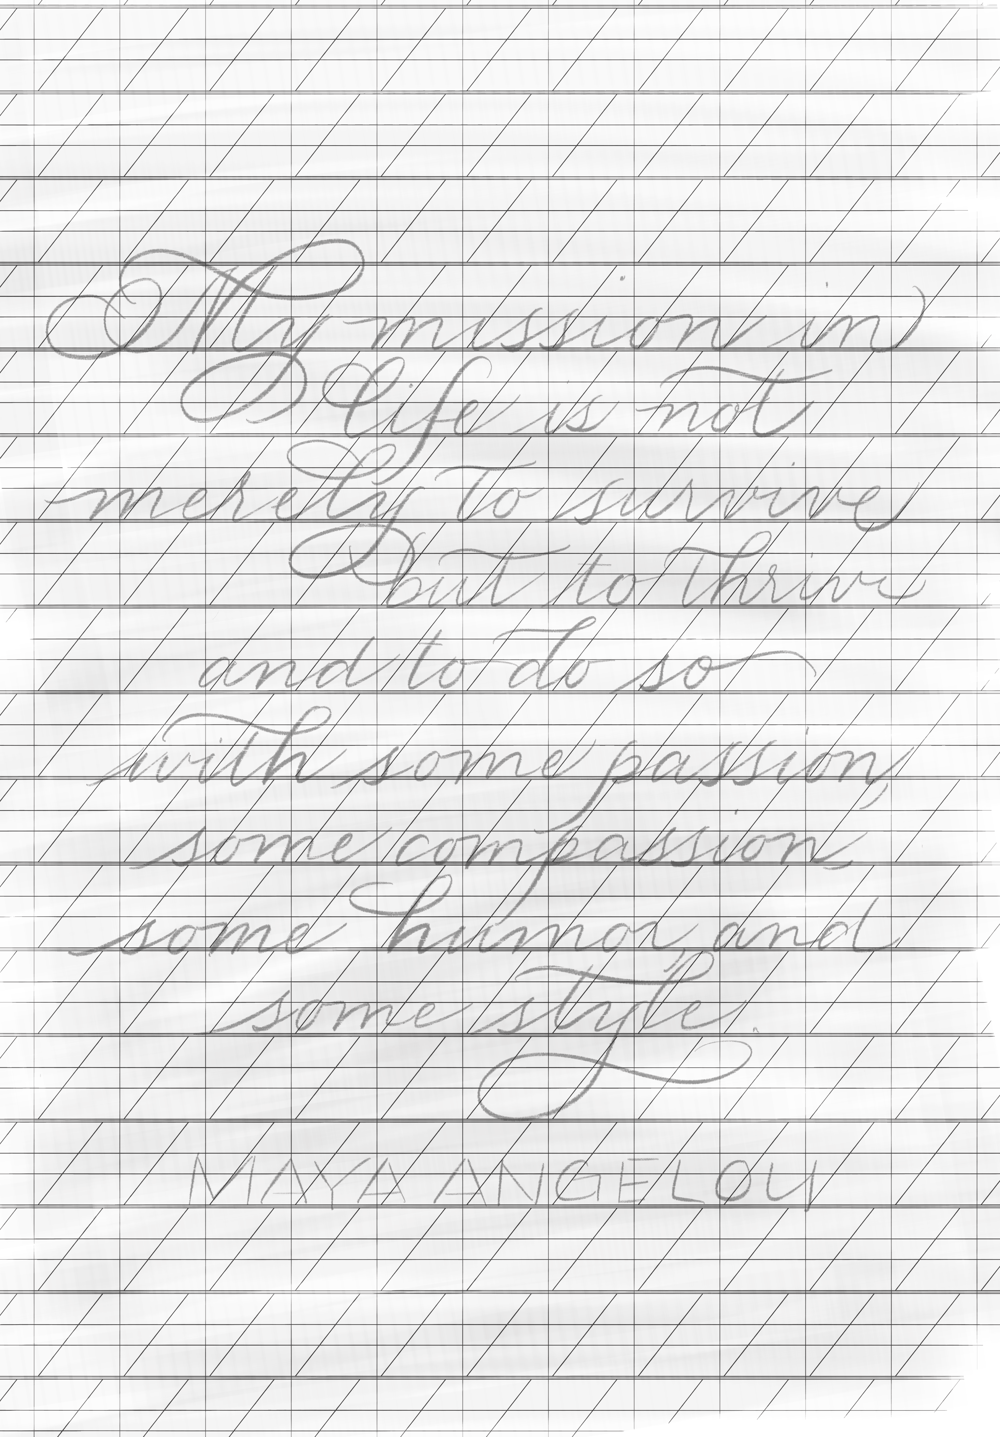 My mission in
life is not
merely to survive
but to thrive
and to do so
with some passion,
some compassion
some humor, and
some style.
MAYA ANGELOU